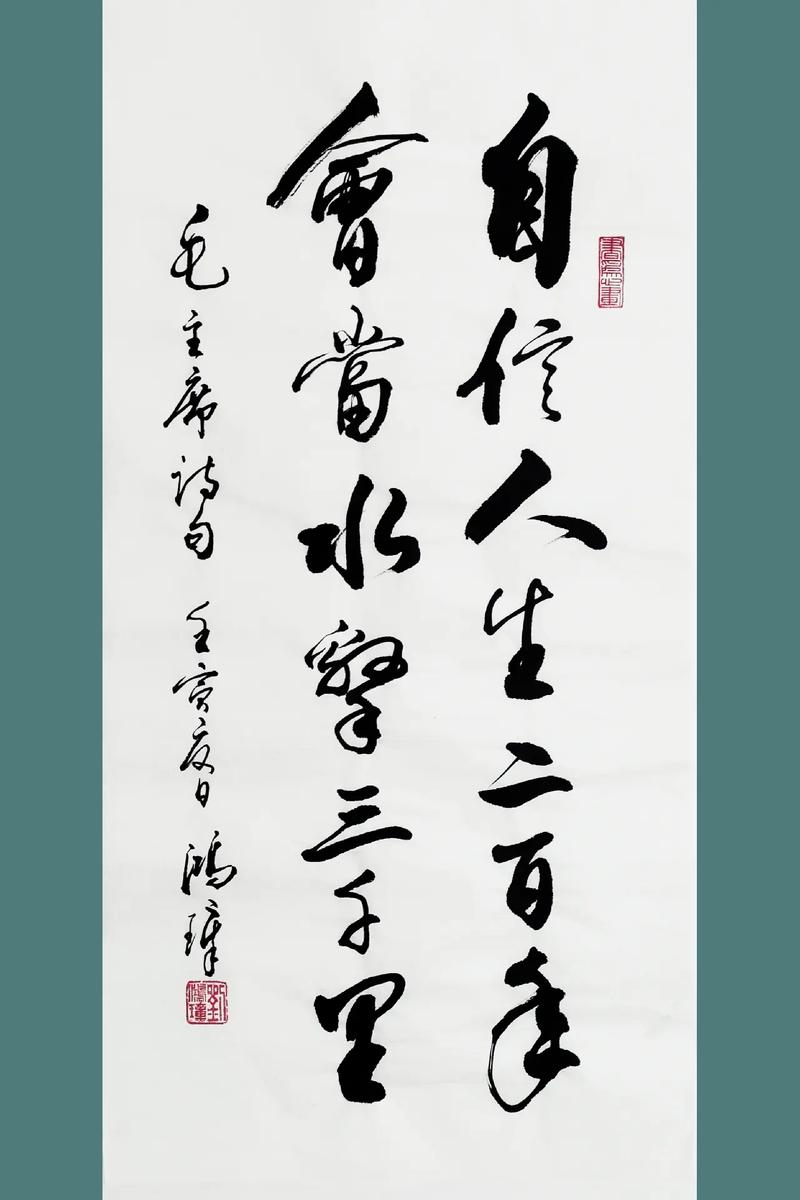 自信人生二百年
會當水擊三千里
毛主席詩句 壬寅夏日 鴻璋